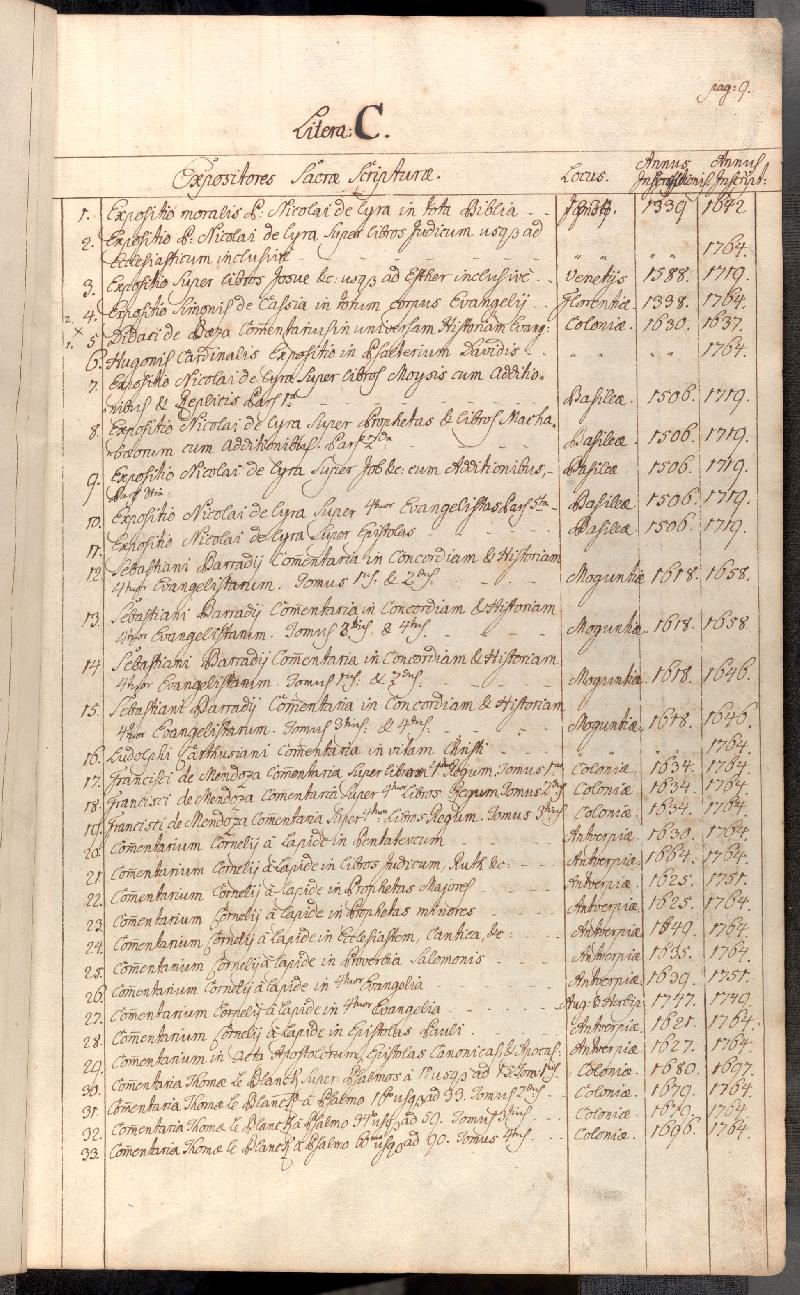 pag: 9.
Litera: C.
Expositores Sacræ Scripturæ. Locus. Annus Impressionis. Annus Inscript:
1. Expositio moralis P: Nicolai de Lyra in tota Biblia - - 1339 1642
2. Expositio P: Nicolai de Lyra Super libros Judicum usq3 ad
Ecclesiasticum inclusivè - - - - - - „ „ „ „ 1764.
3. Expositio Super libros Josue &c: usq3 ad Esther inclusivè - - Venetijs 1588. 1719.
4. Expositio Simonis de Cassia in totum corpus Evangelij - - Florentiæ 1338. 1764.
2. x
1. 5 Didaci de Baeza Comentarius in universam Historiam Evang: Coloniæ. 1630. 1637.
6. Hugonis Cardinalis Expositio in Psalterium Davidis - - „ „ „ „ 1764.
7. Expositio Nicolai de Lyra Super libros Moysis cum Additio-
nibus & Replicis Pars 1a - - - - - Basileæ 1506. 1719.
8. Expositio Nicolai de Lyra Super Prophetas & libros Macha-
bæorum cum Additionibus. Pars 2da - - - Basileæ. 1506. 1719.
9. Expositio Nicolai de Lyra Super Job &c: cum Additionibus, - Basileæ. 1506. 1719.
Pars 3tia:
10. Expositio Nicolai de Lyra Super 4tuor Evangelistas Pars 5ta - Basileæ 1506. 1719.
11. Expositio Nicolai de Lyra Super Epistolas - - - - Basileæ. 1506. 1719.
12. Sebastiani Barradij Com̅entaria in Concordiam & Historiam
4tuor Evangelistarum. Tomus 1us. & 2dus. - - - - Moguntiæ 1618. 1658.
13. Sebastiani Barradij Com̅entaria in Concordiam & Historiam
4tuor Evangelistarum. Tomus 3tius: & 4tus. - - - Moguntiæ. 1618. 1658
14 Sebastiani Barradij Com̅entaria in Concordiam & Historiam
4tuor Evangelistarum. Tomus 1us: & 2dus. - - - Moguntiæ. 1618. 1646.
15. Sebastiani Barradij Com̅entaria in Concordiam & Historiam
4tuor Evangelistarum. Tomus 3tius: & 4tus. - - - Moguntiæ. 1618. 1646.
16. Ludolphi Carthusiani Com̅entaria in vitam Christi - - - - „ „ 1764.
17. Francisci de Mendoza Com̅entaria Super libros Regum. Tomus 1us Coloniæ. 1634. 1764.
18. Francisci de Mendoza Com̅entaria Super 4tuor libros Regum. Tomus 2dus Coloniæ. 1634. 1764.
19. Francisci de Mendoza Com̅entaria Super 4tuor libros Regum. Tomus 3tius Coloniæ. 1634. 1764.
20. Com̅entarium Cornelij à Lapide in Pentateucum - - - - Antverpiæ 1630. 1764.
21 Com̅entarium Cornelij à Lapide in libros Judicum, Ruth &c: - - - Antverpiæ 1664. 1764.
22. Com̅entarium Cornelij à Lapide in Prophetas Majores - - - - Antverpiæ 1625. 1751.
23. Com̅entarium Cornelij à Lapide in Prophetas minores - - - - Antverpiæ 1625. 1764.
24. Com̅entarium Cornelij à Lapide in Ecclesiastem, Cantica, &c: - - Antverpiæ 1649. 1764.
25. Com̅entarium Cornelij à Lapide in Proverbia Salomonis - - - Antverpiæ 1635. 1764.
26. Com̅entarium Cornelij à Lapide in 4tuor Evangelia - - - - Antverpiæ 1639. 1751.
27. Com̅entarium Cornelij à Lapide in 4tuor Evangelia - - - - Aug: & Herbip. 1747. 1749.
28. Com̅entarium Cornelij à Lapide in Epistolas Pauli - - - - Antverpiæ. 1621. 1764.
29. Com̅entarium in Acta Apostolorum, Epistolas Canonicas, & Apocal: Antverpiæ 1627. 1764.
30. Com̅entaria Thomæ le Blanck Super Psalmos à 1o usq3 ad 15. Tom: 1us. Coloniæ. 1680. 1697.
31. Com̅entaria Thomæ le Blanck à Psalmo 16o usq3 ad 33. Tomus 2dus - Coloniæ. 1679. 1764.
32. Com̅entaria Thomæ le Blanck à Psalmo usq3 ad 59. Tomus 3tius - - Coloniæ. 1679. 1764
33. Com̅entaria Thomæ le Blanck à Psalmo usq3 ad 90. Tomus 4tus - - Coloniæ. 1696. 1764.